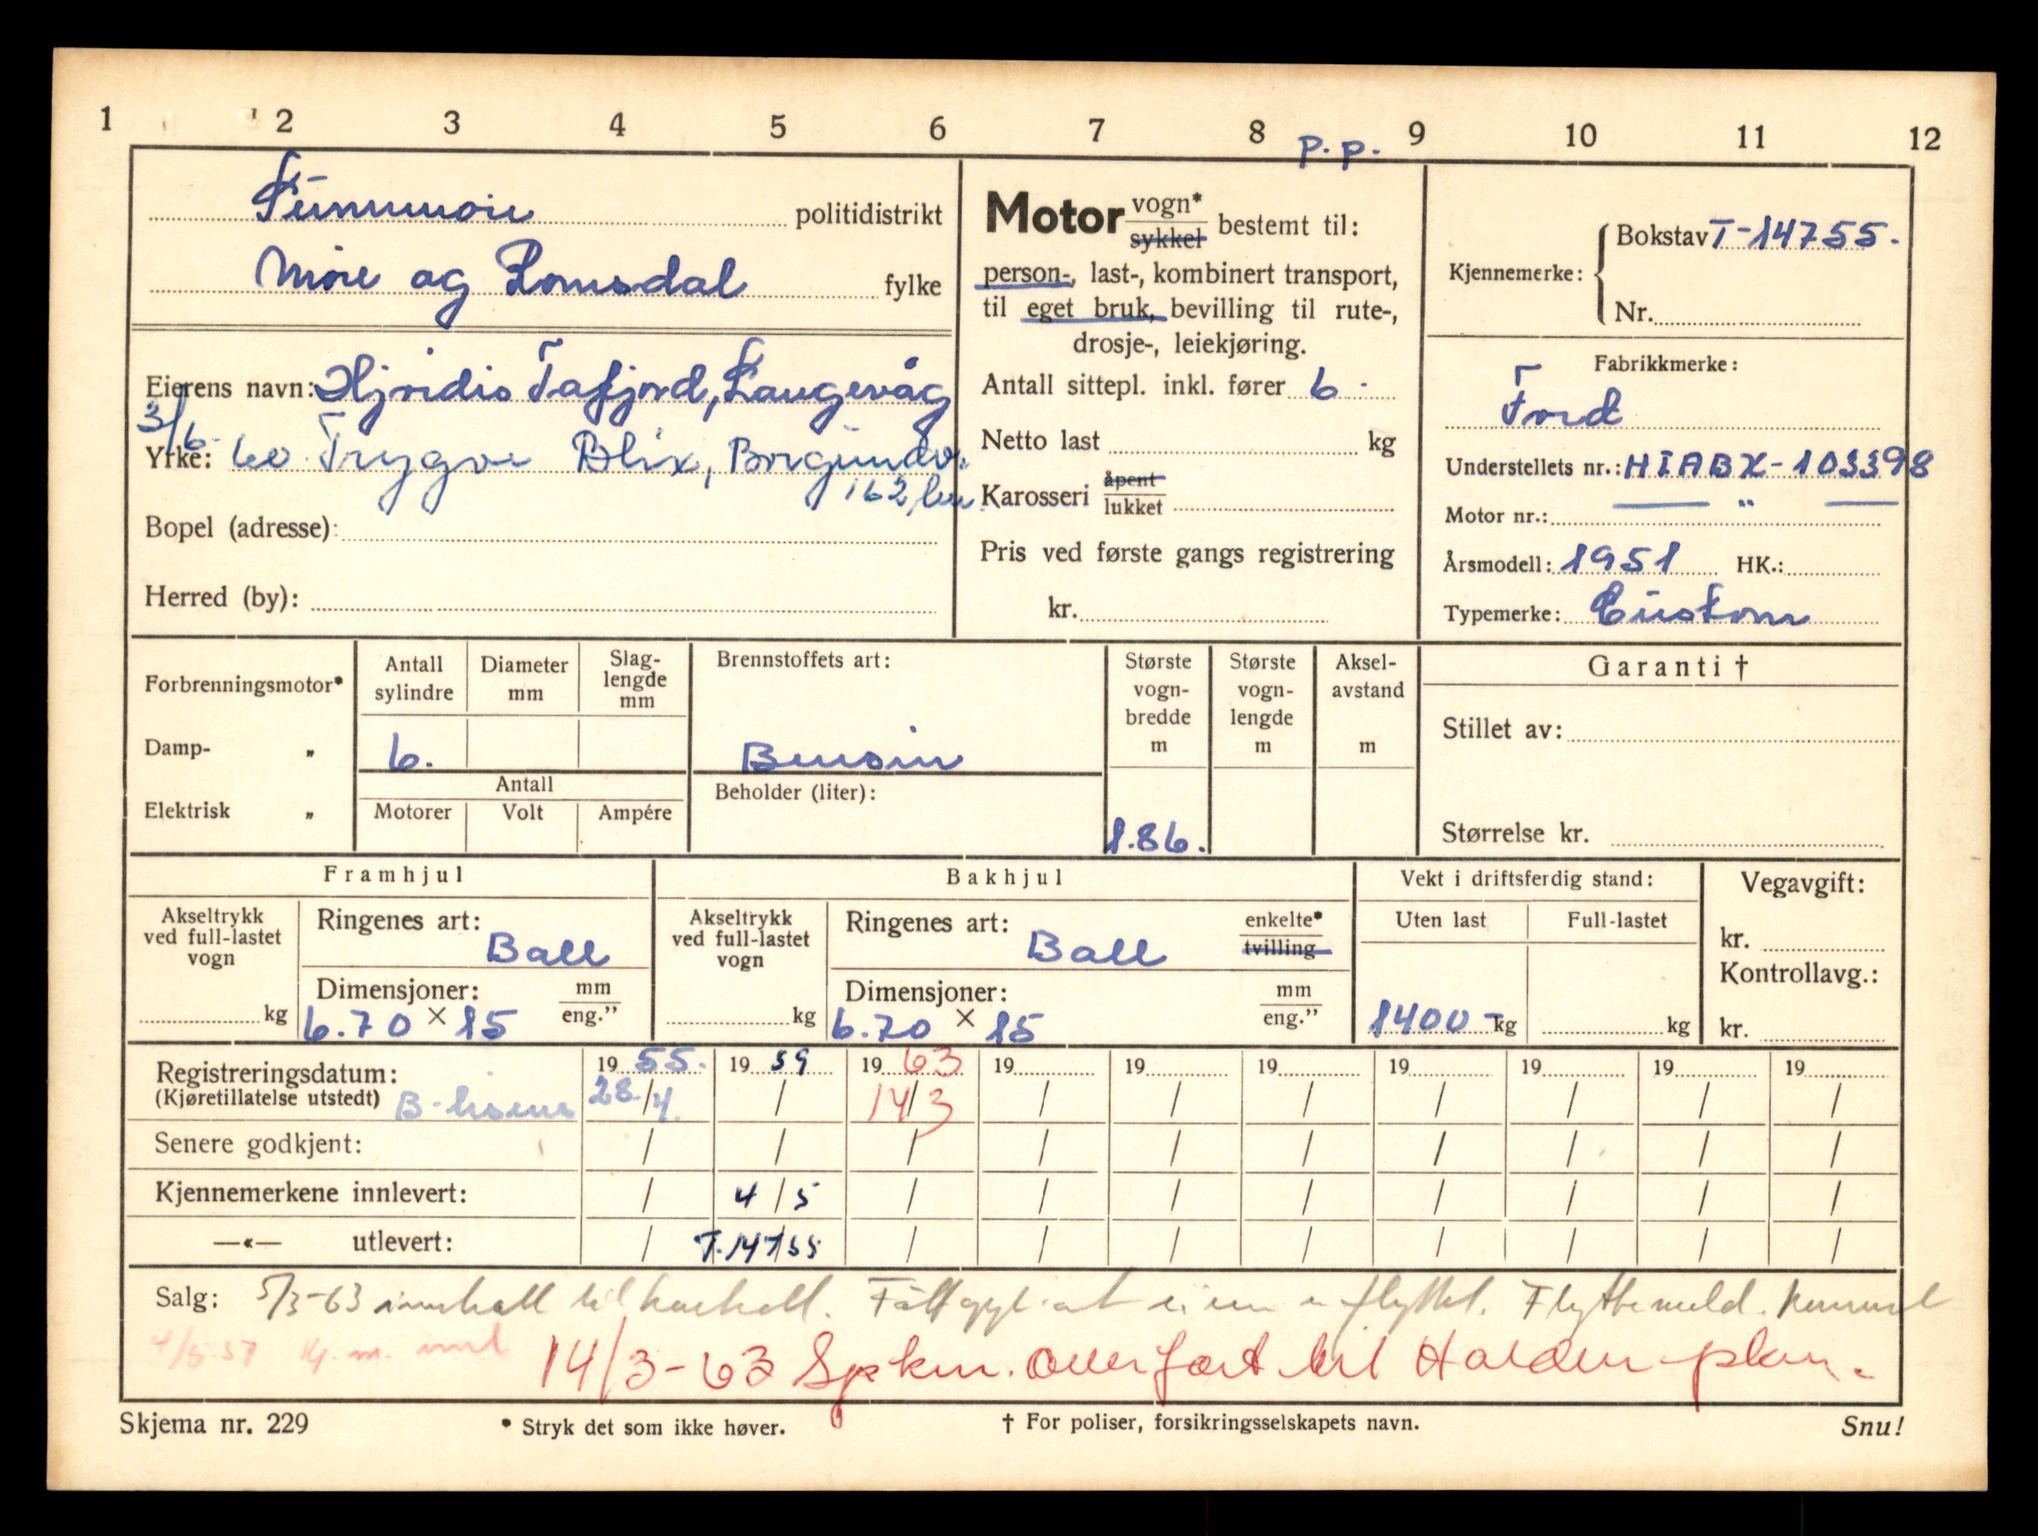 1 2 3 4 5 6 7 8 9 10 11 12
p.p.
Sunnmøre politidistrikt
Møre og Romsdal fylke
Eierens navn: Hjørdis Tafjord, Langevåg
3/6-
Yrke: 60 Trygve Blix, Borgundv.
162
Bopel (adresse):
Herred (by):
Motor vogn* sykkel bestemt til:
person-, last-, kombinert transport,
til eget bruk, bevilling til rute-,
drosje-, leiekjøring.
Antall sittepl. inkl. fører 6
Netto last kg
Karosseri åpent lukket
Pris ved første gangs registrering
kr.
Kjennemerke: Bokstav T-14755.
Nr.
Fabrikkmerke:
Ford
Understellets nr.: HIABX-103398
Motor nr.: — " —
Årsmodell: 1951 HK.:
Typemerke: Custom
Forbrenningsmotor*
Damp- "
Elektrisk "
Antall sylindre
Diameter mm
Slag-lengde mm
6.
Antall
Motorer Volt Ampére
Brennstoffets art:
Bensin
Beholder (liter):
Største vogn-bredde m
1.86.
Største vogn-lengde m
Aksel-avstand m
Garanti †
Stillet av:
Størrelse kr.
Framhjul
Akseltrykk ved full-lastet vogn
kg
Ringenes art: Ball
Dimensjoner: mm eng.”
6.70 × 15
Bakhjul
Akseltrykk ved full-lastet vogn
kg
Ringenes art: Ball enkelte* tvilling
Dimensjoner: mm eng.”
6.70 × 15
Vekt i driftsferdig stand:
Uten last Full-lastet
1400- kg kg
Vegavgift:
kr.
Kontrollavg.:
kr.
Registreringsdatum: 19 55. 19 59 19 63 19 19 19 19 19 19 19
(Kjøretillatelse utstedt) B-lisens 28/4. / 14/3 / / / / / / /
Senere godkjent: / / / / / / / / / /
Kjennemerkene innlevert: / 4/5 / / / / / / / /
—«— utlevert: / T.14755 / / / / / / / /
Salg: 5/3-63 til flyttet. Flyttemeld.
14/3-63 Spkm. overført til Halden plan.
Skjema nr. 229 * Stryk det som ikke høver. † For poliser, forsikringsselskapets navn. Snu!